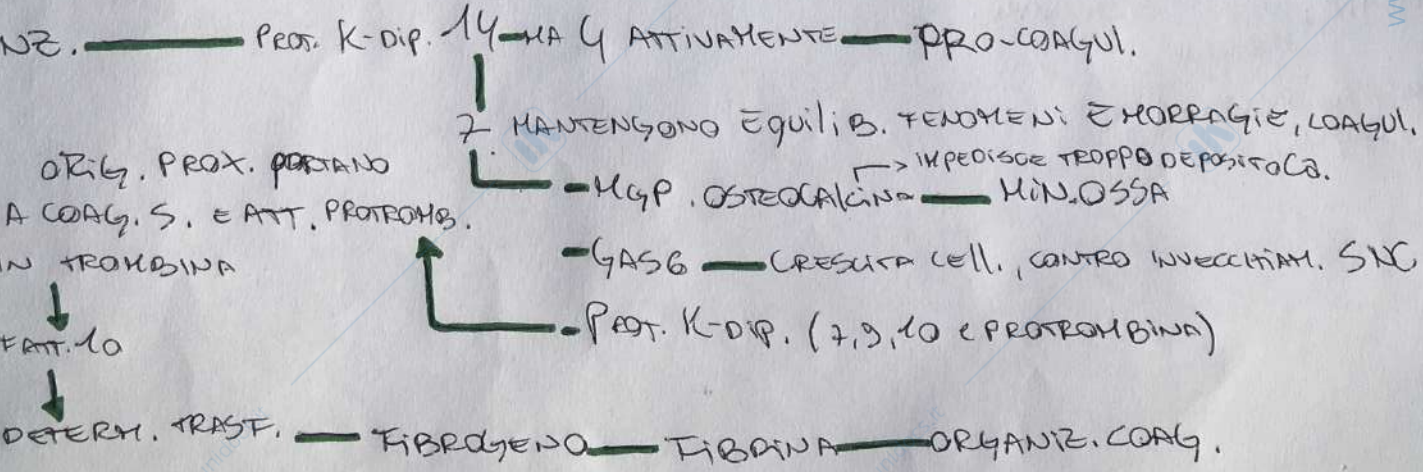 NZ. — PROT. K-DIP. 14 — MA 4 ATTIVAMENTE — PRO-COAGUL.
7 MANTENGONO EQUILIB. FENOMENI EMORRAGIE, COAGUL.
→ IMPEDISCE TROPPO DEPOSITO Ca.
ORIG. PROX. PORTANO
- MGP. OSTEOCALCINA — MIN. OSSA
A COAG. S. E ATT. PROTROMB.
IN TROMBINA
- GAS6 — CRESCITA CELL., CONTRO INVECCHIAM. SNC
- PROT. K-DIP. (7,9,10 e PROTROMBINA)
FATT. 10
DETERM. TRASF. — FIBROGENO — FIBRINA — ORGANIZ. COAG.